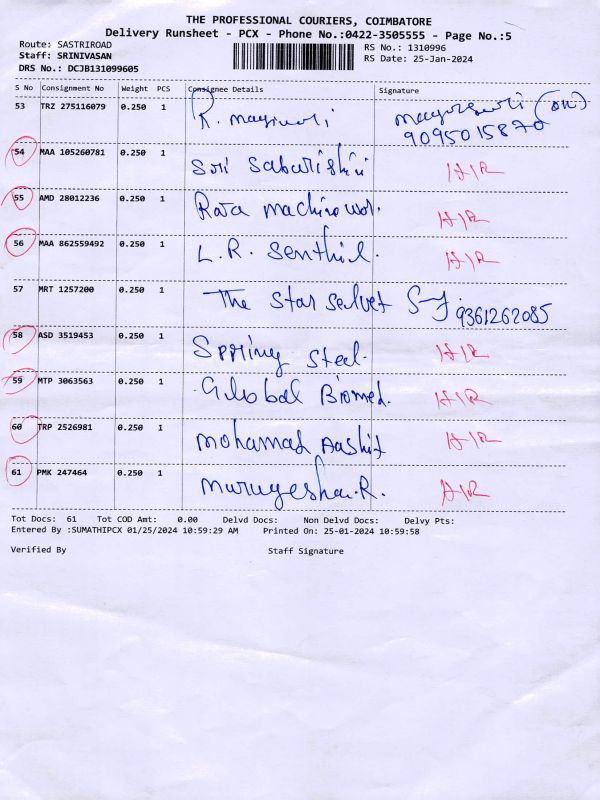 THE PROFESSIONAL COURIERS, COIMBATORE
Delivery Runsheet - PCX - Phone No.:0422-3505555 - Page No.:5
Route: SASTRIROAD
RS No.: 1310996
Staff: SRINIVASAN
RS Date: 25-Jan-2024
DRS No.: DCJB131099605
S No Consignment No Weight PCS Consignee Details Signature
53 TRZ 275116079 0.250 1 R. (ON) 9095015870
54 MAA 105260781 0.250 1 Sri Sabarishini A/R
55 AMD 28012236 0.250 1 Raja machine A/R
56 MAA 862559492 0.250 1 L.R. Senthil. A/R
57 MRT 1257200 0.250 1 The Star 9361262085
58 ASD 3519453 0.250 1 Spring Steel. A/R
59 MTP 3063563 0.250 1 Global Biomed. A/R
60 TRP 2526981 0.250 1 Mohamad Aashif A/R
61 PMK 247464 0.250 1 A/R
Tot Docs: 61 Tot COD Amt: 0.00 Delvd Docs: Non Delvd Docs: Delvy Pts:
Entered By :SUMATHIPCX 01/25/2024 10:59:29 AM Printed On: 25-01-2024 10:59:58
Verified By Staff Signature